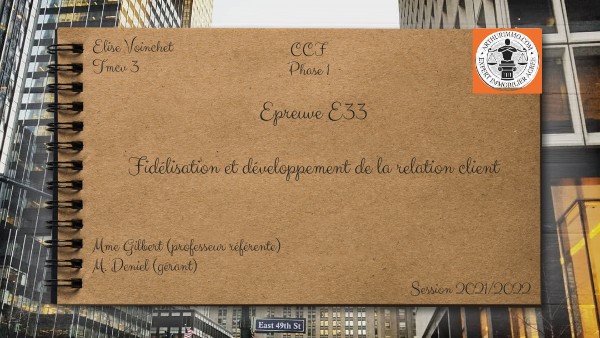 Elise Voinchet
Tmcv 3
CCF
Phase 1
ARTHURIMMO.COM
EXPERT IMMOBILIER AGRÉÉ
Epreuve E33
Fidélisation et développement de la relation client
Mme Gilbert (professeur référente)
M. Deniel (gérant)
Session 2021/2022
East 49th St